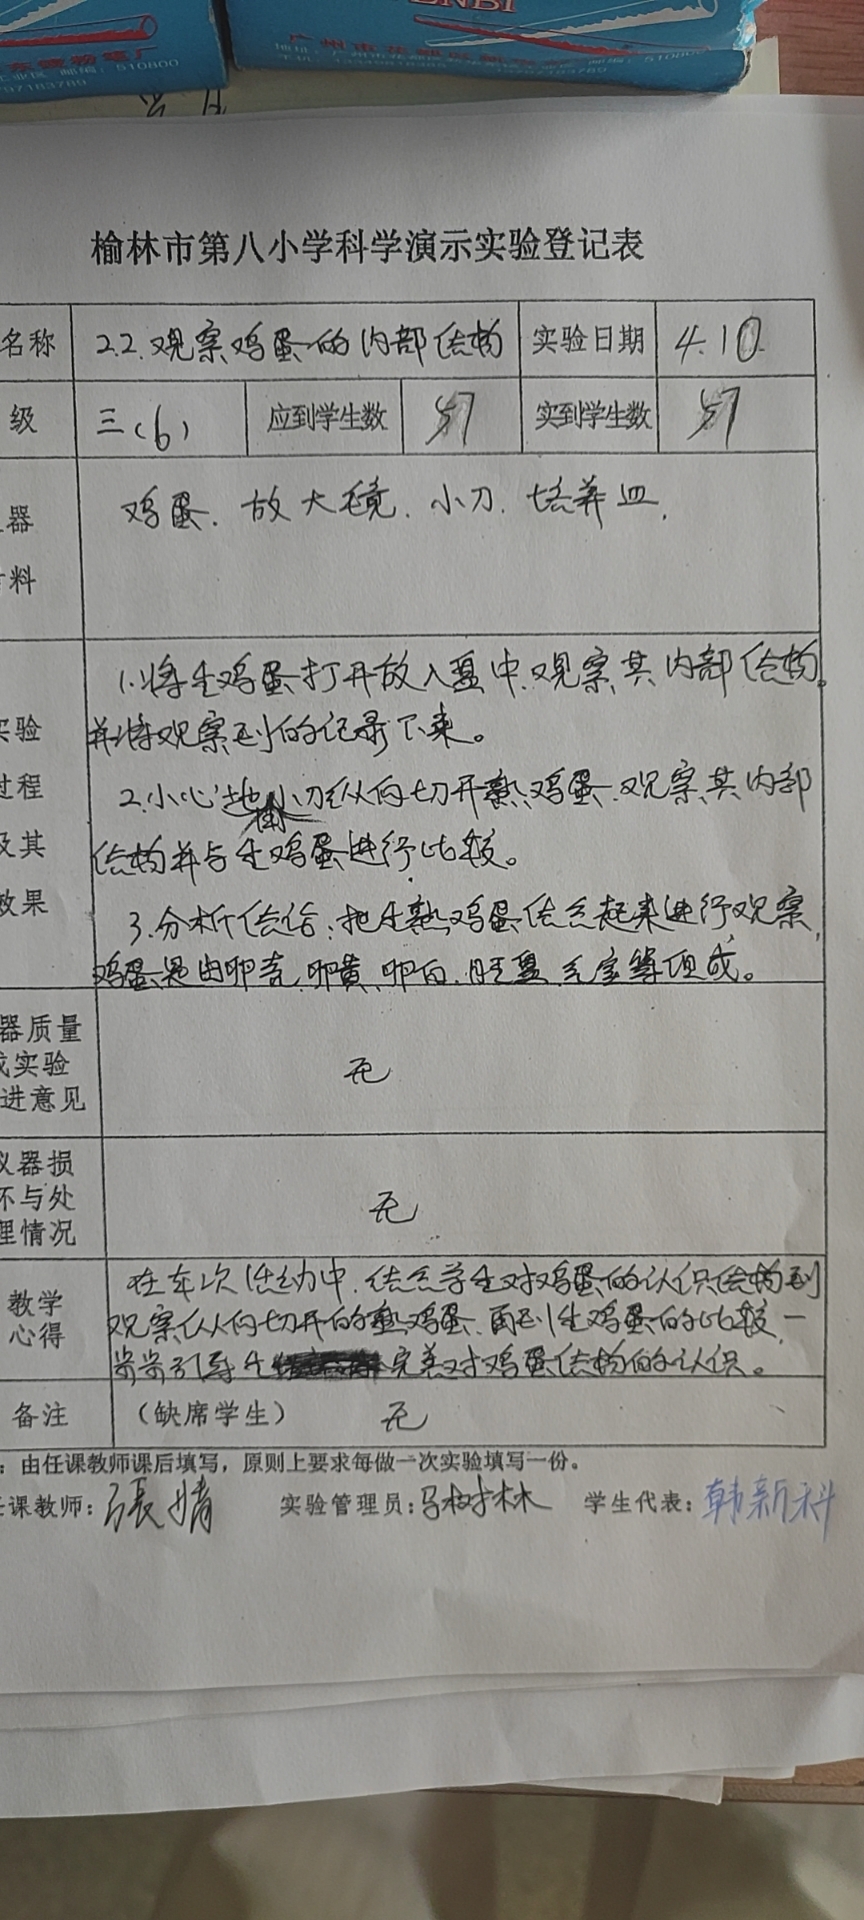 ENBI
广州市花都
东德粉笔厂
工业区 邮编：510800
797183789
榆林市第八小学科学演示实验登记表
名称 2.2.观察鸡蛋的内部结构 实验日期 4.10
级 三(6) 应到学生数 57 实到学生数 57
器 鸡蛋.放大镜.小刀.培养皿.
料
1.将生鸡蛋打开放入盘中.观察其内部结构。
实验 并将观察到的记录下来。
过程 2.小心地用小刀纵向切开熟鸡蛋.观察其内部
及其 结构并与生鸡蛋进行比较。
效果 3.分析结论:把生熟鸡蛋结合起来进行观察,
鸡蛋是由卵壳.卵黄.卵白.胚盘.气室等组成。
器质量
或实验 无
进意见
仪器损
坏与处 无
理情况
在本次活动中.结合学生对鸡蛋的认识结构到
教学 观察从纵向切开的熟鸡蛋.再到生鸡蛋的比较.一
心得 步步引导生完善对鸡蛋结构的认识。
备注 （缺席学生） 无
：由任课教师课后填写，原则上要求每做一次实验填写一份。
任课教师：张婧 实验管理员：马树林 学生代表：韩新科